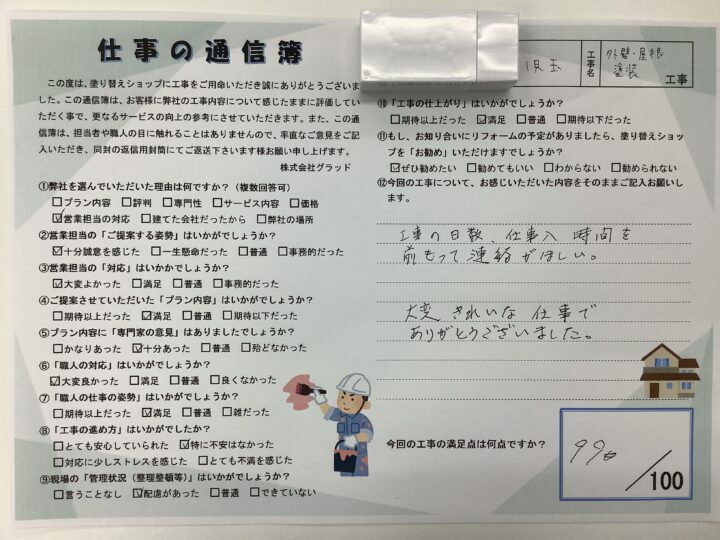 仕事の通信簿
この度は、塗り替えショップに工事をご用命いただき誠にありがとうございま
した。この通信簿は、お客様に弊社の工事内容について感じたままに評価してい
ただく事で、更なるサービスの向上の参考にさせていただきます。また、この通
信簿は、担当者や職人の目に触れることはありませんので、率直なご意見をご記
入いただき、同封の返信用封筒にてご返送下さいます様お願い申し上げます。
株式会社グラッド
①弊社を選んでいただいた理由は何ですか？（複数回答可）
□プラン内容 □評判 □専門性 □サービス内容 □価格
☑営業担当の対応 □建てた会社だったから □弊社の場所
②営業担当の「ご提案する姿勢」はいかがでしょうか？
☑十分誠意を感じた □一生懸命だった □普通 □事務的だった
③営業担当の「対応」はいかがでしょうか？
☑大変よかった □満足 □普通 □事務的だった
④ご提案させていただいた「プラン内容」はいかがでしょうか？
□期待以上だった ☑満足 □普通 □期待以下だった
⑤プラン内容に「専門家の意見」はありましたでしょうか？
□かなりあった ☑十分あった □普通 □殆どなかった
⑥「職人の対応」はいかがでしょうか？
☑大変良かった □満足 □普通 □良くなかった
⑦「職人の仕事の姿勢」はいかがでしょうか？
□期待以上だった ☑満足 □普通 □雑だった
⑧「工事の進め方」はいかがでしたか？
□とても安心していられた ☑特に不安はなかった
□対応に少しストレスを感じた □とても不満を感じた
⑨現場の「管理状況（整理整頓等）」はいかがでしょうか？
□言うことなし ☑配慮があった □普通 □できていない
児玉
工事名
外壁・屋根
塗装
工事
⑩「工事の仕上がり」はいかがでしょうか？
□期待以上だった ☑満足 □普通 □期待以下だった
⑪もし、お知り合いにリフォームの予定がありましたら、塗り替えショッ
プを「お勧め」いただけますでしょうか？
☑ぜひ勧めたい □勧めてもいい □わからない □勧められない
⑫今回の工事について、お感じいただいた内容をそのままご記入お願いし
ます。
工事の日数、仕事入時間を
前もって連絡がほしい。
大変きれいな仕事で
ありがとうございました。
今回の工事の満足点は何点ですか？
/100